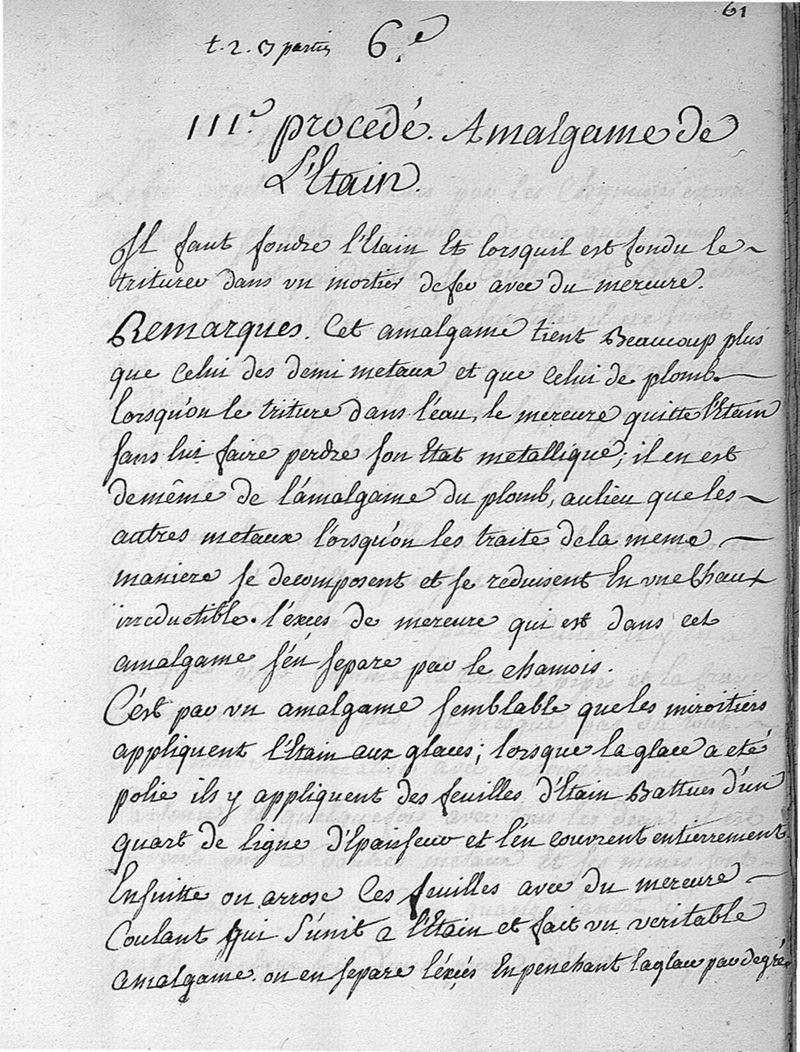 61
t. 2. 3 partie 6.e
III.e procedé. Amalgame de
L'Etain
Il faut fondre l'Etain Et lorsquil est fondu le
triturer dans un mortier de fer avec du mercure.
Remarques. Cet amalgame tient Beaucoup plus
que celui des demi metaux et que celui de plomb.
lorsqu'on le triture dans l'eau, le mercure quitte l'Etain
sans lui faire perdre son Etat metallique; il en est
demême de l'amalgame du plomb, aulieu que les
autres metaux lorsqu'on les traite dela meme
maniere se decomposent et se reduisent En une Chaux
irreductible. l'éxces de mercure qui est dans cet
amalgame s'en separe par le chamois.
C'est par un amalgame semblable queles miroitiers
appliquent l'Etain aux glaces; lorsque la glace a eté
polie ils y appliquent des feuilles d'Etain Battues d'un
quart de ligne d'Epaisseur et l'en couvrent entierrement
Ensuitte on arrose Ces feuilles avec du mercure
Coulant qui s'unit a l'Etain et fait un veritable
amalgame. on en separe l'éxcés En penchant laglace par degrés